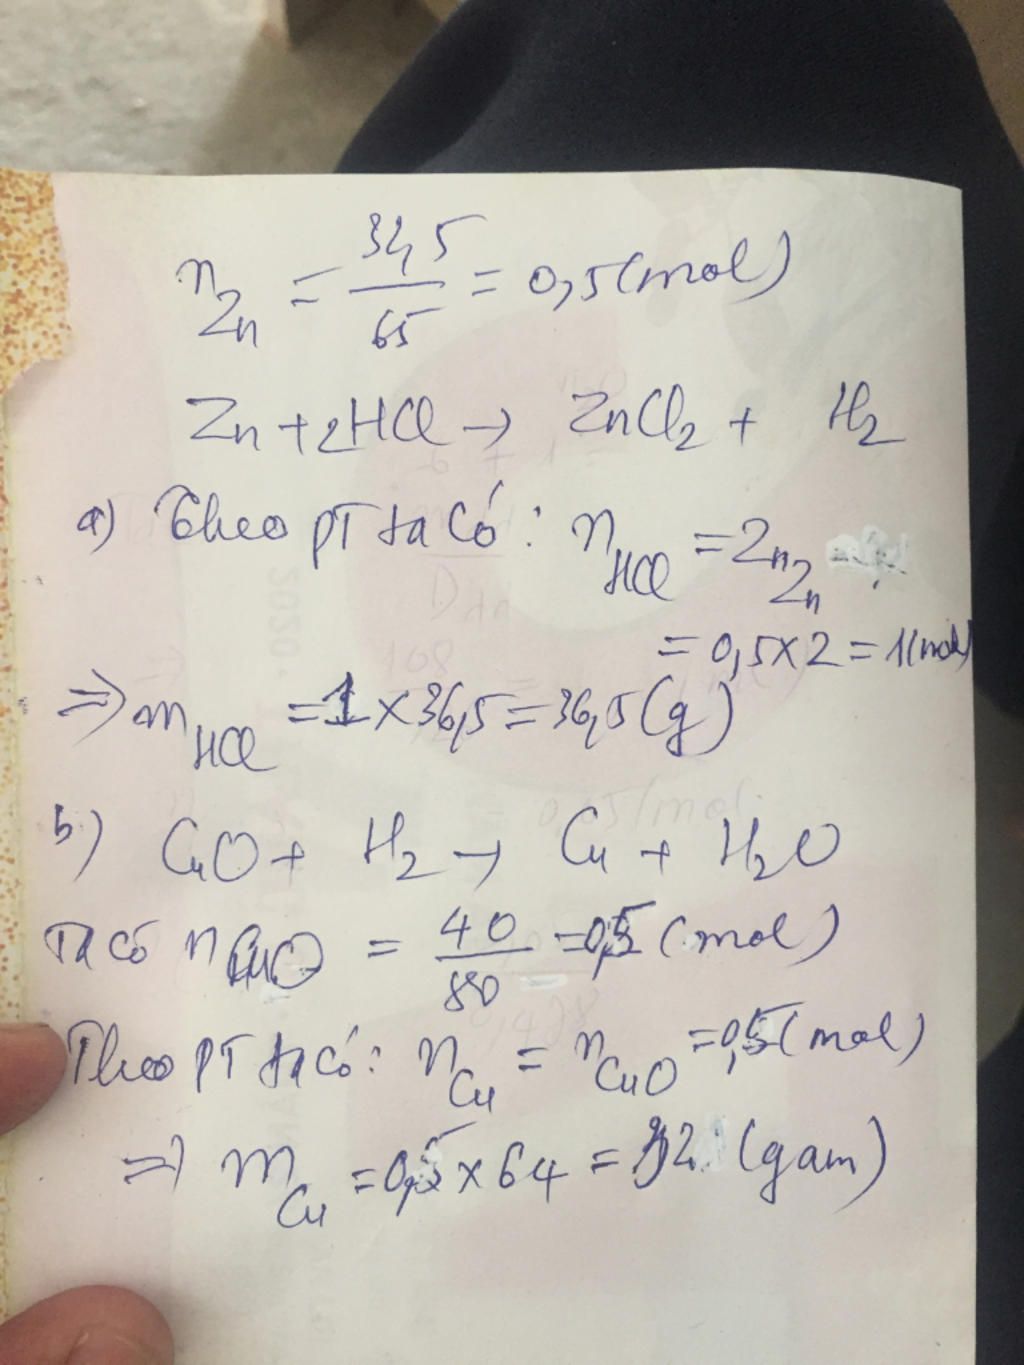 n_Zn = 34,5/65 = 0,5 (mol)
Zn + 2HCl → ZnCl₂ + H₂
a) Theo PT ta có: n_HCl = 2n_Zn
= 0,5 x 2 = 1 (mol)
=> m_HCl = 1 x 36,5 = 36,5 (g)
b) CuO + H₂ → Cu + H₂O
Ta có n_CuO = 40/80 = 0,5 (mol)
Theo PT ta có: n_Cu = n_CuO = 0,5 (mol)
=> m_Cu = 0,5 x 64 = 32 (gam)